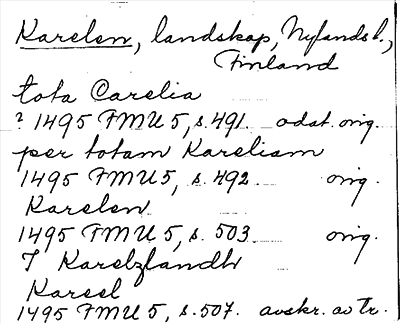 Karelen, landskap, Nylands l.,
Finland
tota Carelia
? 1495 FMU 5, s. 491. odat. orig.
per totam Kareliam
1495 FMU 5, s. 492 orig.
Karelen
1495 FMU 5, s. 503 orig.
I Karelzlandh
Kareel
1495 FMU 5, s. 507. avskr. av tr.